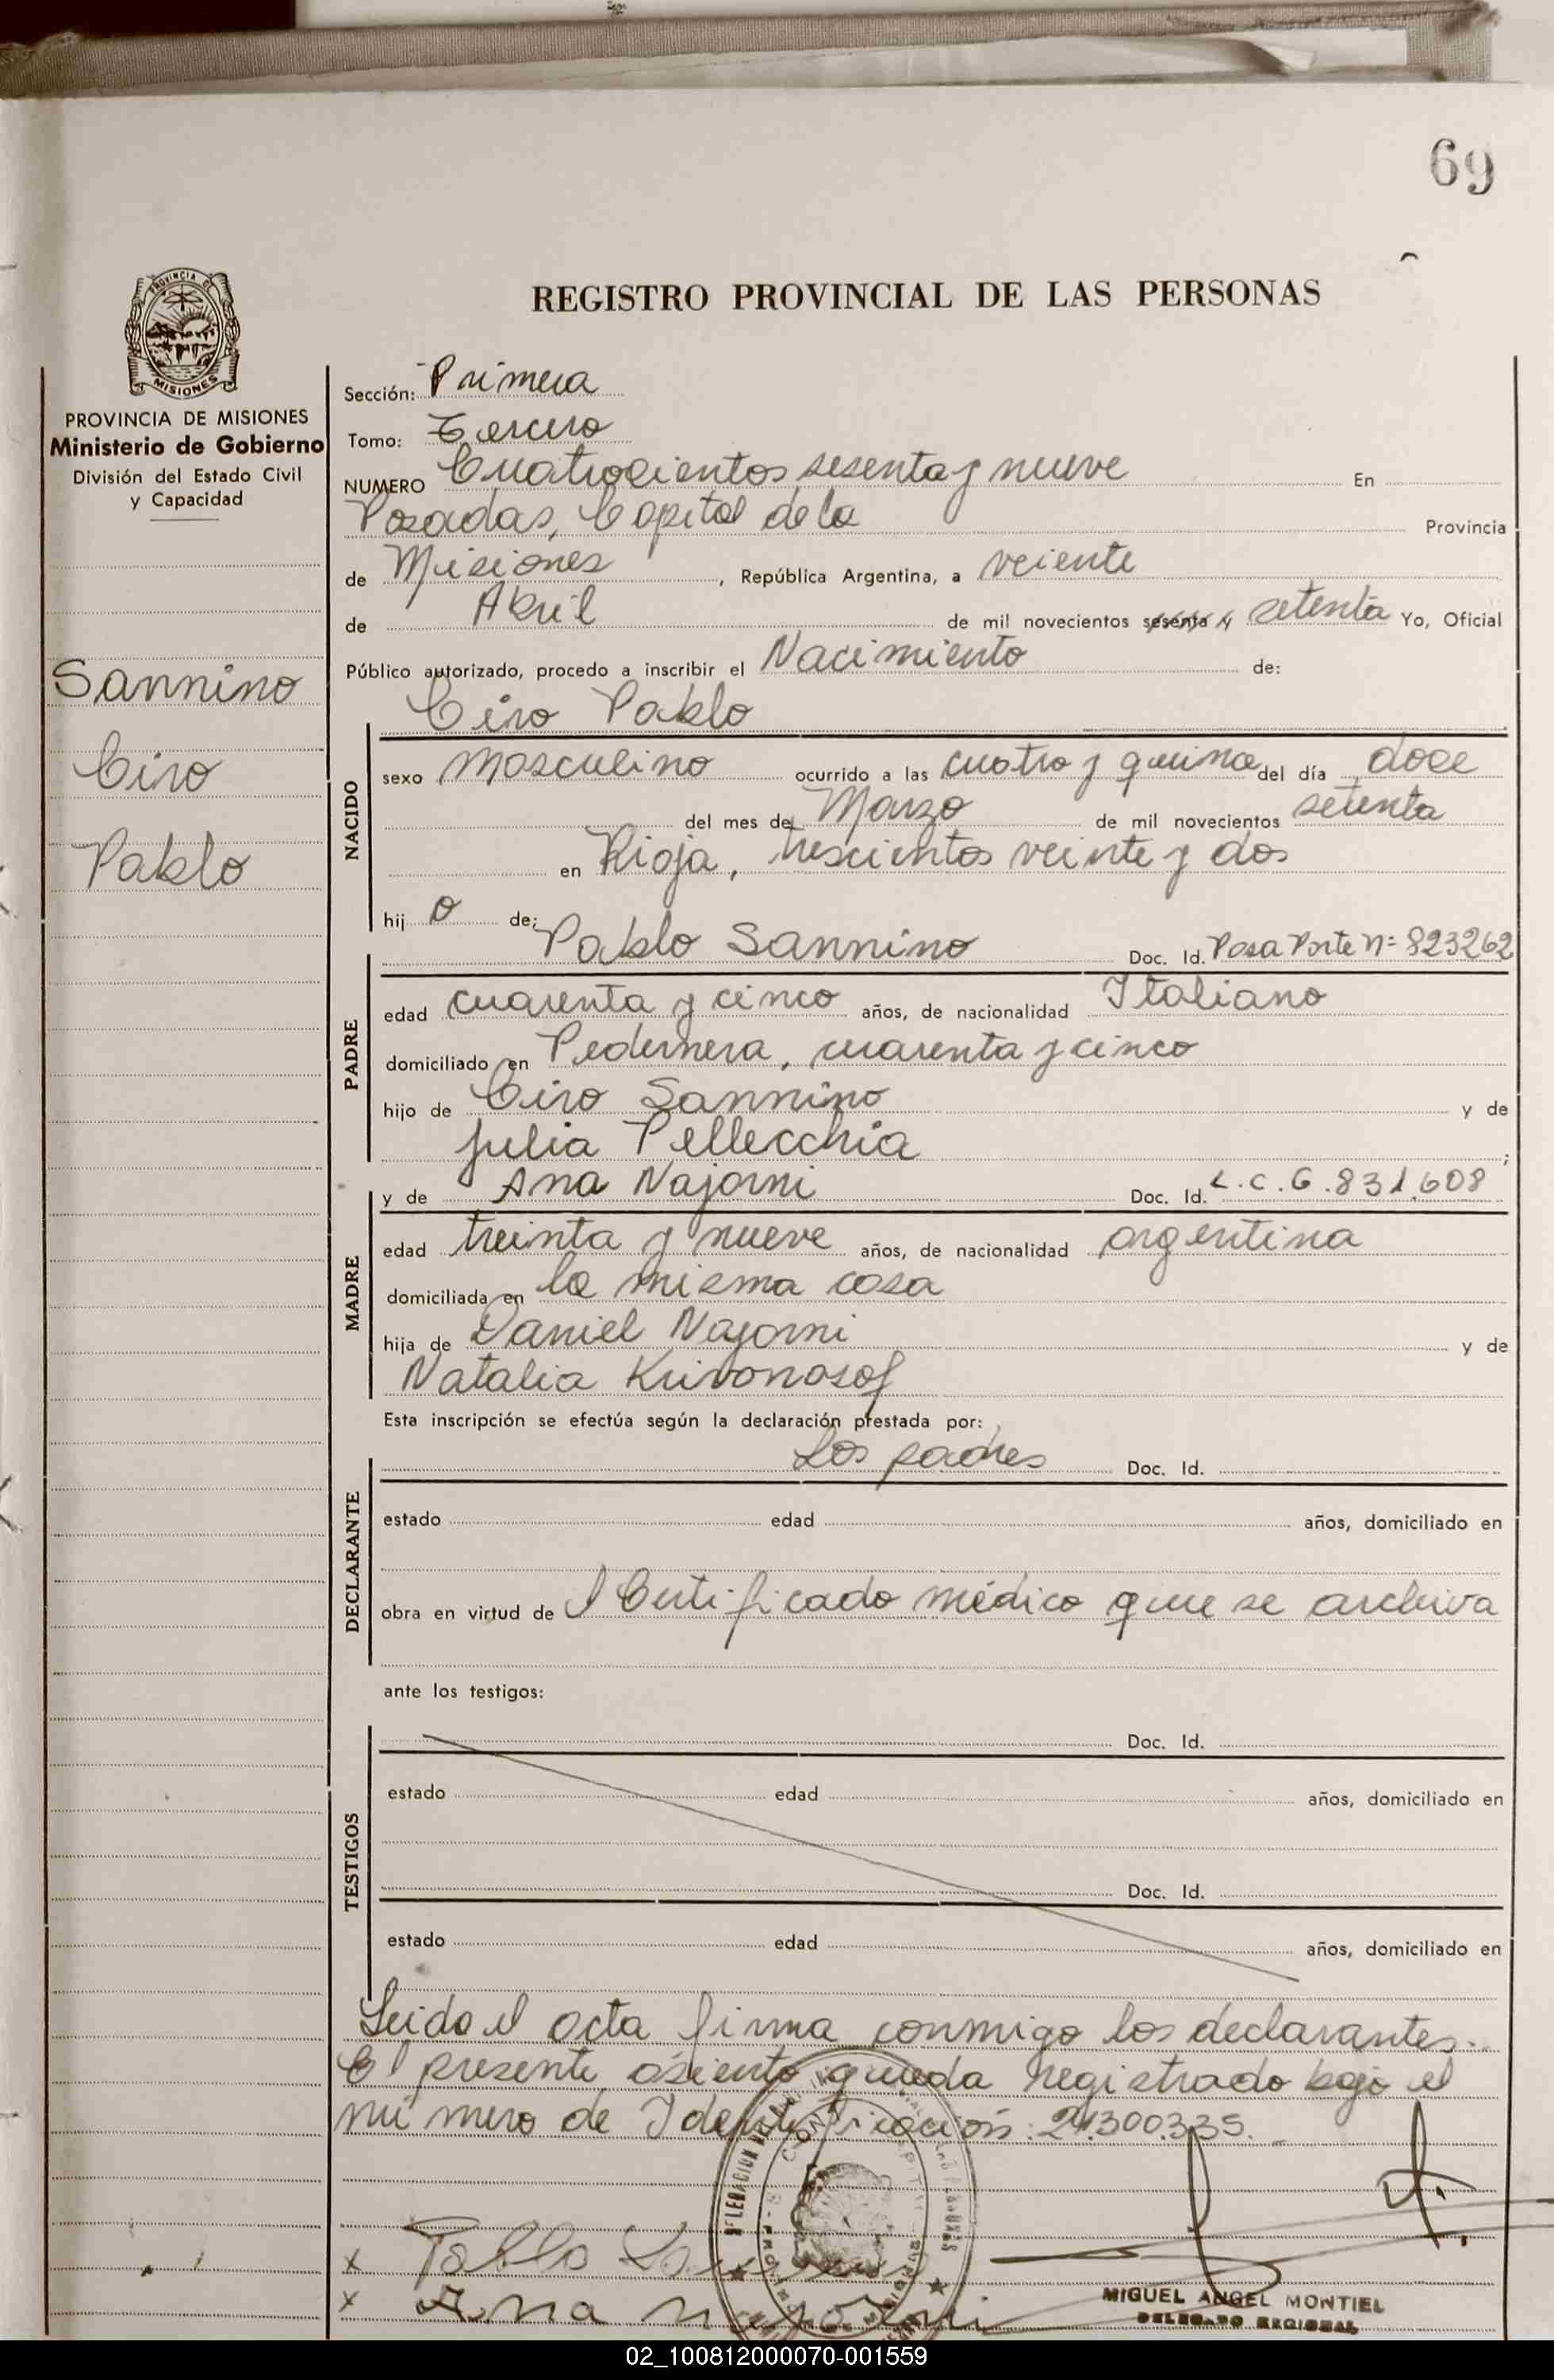 69
REGISTRO PROVINCIAL DE LAS PERSONAS
PROVINCIA DE
MISIONES
PROVINCIA DE MISIONES
Ministerio de Gobierno
División del Estado Civil
y Capacidad
Sannino
Ciro
Pablo
Sección: Primera
Tomo: Tercero
NUMERO Cuatrocientos sesenta y nueve En
Posadas, Capital de la Provincia
de Misiones, República Argentina, a veiente
de Abril de mil novecientos sesenta y setenta Yo, Oficial
Público autorizado, procedo a inscribir el Nacimiento de:
Ciro Pablo
NACIDO
sexo Masculino ocurrido a las cuatro y quince del día doce
del mes de Marzo de mil novecientos setenta
en Rioja, trescientos veinte y dos
hij o de:
Pablo Sannino Doc. Id. Pasa Porte Nº 823262
PADRE
edad cuarenta y cinco años, de nacionalidad Italiano
domiciliado en Pedernera, cuarenta y cinco
hijo de Ciro Sannino y de
Julia Pellecchia ;
y de Ana Najorni Doc. Id. L.C.6.831.608
MADRE
edad treinta y nueve años, de nacionalidad argentina
domiciliada en la misma casa
hija de Daniel Najorni y de
Natalia Krivonosof
Esta inscripción se efectúa según la declaración prestada por:
Los padres Doc. Id.
DECLARANTE
estado edad años, domiciliado en
obra en virtud de l Certificado médico que se archiva
ante los testigos:
Doc. Id.
TESTIGOS
estado edad años, domiciliado en
Doc. Id.
estado edad años, domiciliado en
Leida el acta firma conmigo los declarantes.
El presente asiento queda registrado bajo el
número de Identificación: 21.300.335.
x Pablo Sannino
x Ana Najorni
MIGUEL ANGEL MONTIEL
DELEGADO REGIONAL
02_100812000070-001559